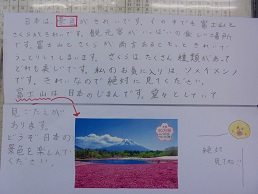 日本は、景色がきれいです。その中でも富士山と
さくらがきれいです。観光客がいっぱいの良い場所
です。富士山とさくらが両方あること
とうりにしてしまいます。さくらはたくさん種類があって
とても美しいです。私のお気に入りはソメイヨシノ
です。きれいなので絶対に見てください。
富士山は日本のじまんです。堂々としていて
見ごたえが
あります。
どうぞ日本の
景色を楽しんで
ください。
絶対
見てね!!